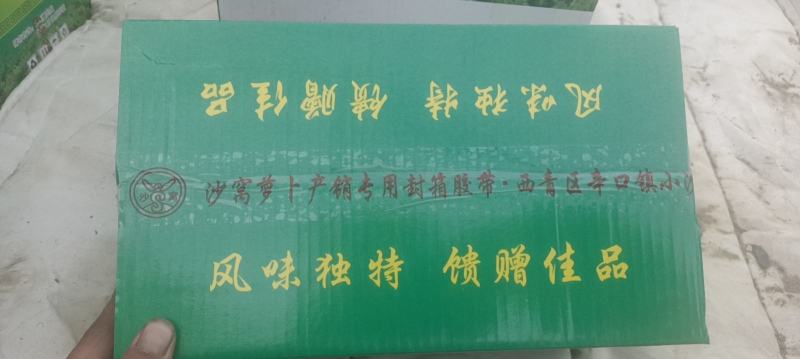 风味独特 馈赠佳品
沙窝萝卜产销专用封箱胶带·西青区辛口镇小沙
风味独特 馈赠佳品